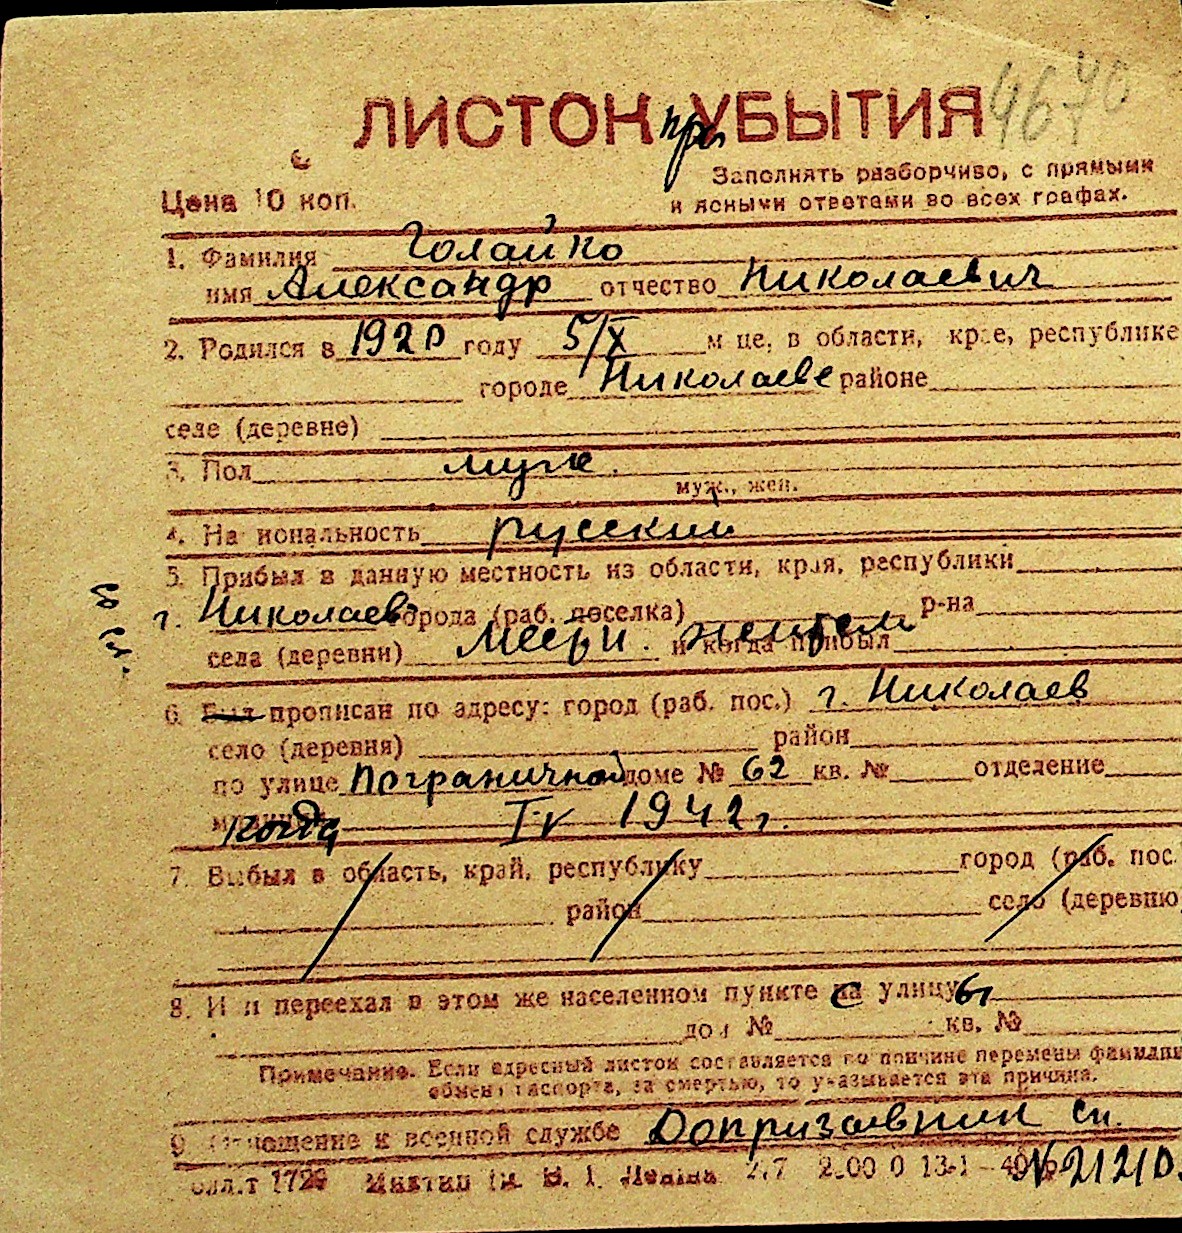 4670
ЛИСТОК при УБЫТИЯ
Цена 10 коп.
Заполнять разборчиво, с прямыми
и ясными ответами во всех графах.
1. Фамилия Голайко
имя Александр отчество Николаевич
2. Родился в 1920 году 5/X м-це, в области, крае, республике
городе Николаеве районе
селе (деревне)
3. Пол муж.
муж., жен.
4. Национальность русский
5. Прибыл в данную местность из области, края, республики
г. Николаев города (раб. поселка) р-на
села (деревни) и когда прибыл
6. Был прописан по адресу: город (раб. пос.) г. Николаев
село (деревня) район
по улице Пограничной доме № 62 кв. № отделение
когда IV 1942 г.
7. Выбыл в область, край, республику город (раб. пос.
район село (деревню
8. Или переехал в этом же населенном пункте на улицу
дом № кв. №
Примечание. Если адресный листок составляется по причине перемены фамилии
обмена паспорта, за смертью, то указывается эта причина.
9 Отношение к военной службе Допризавник
1729 им. В. І. Леніна 13-1 № 21210.